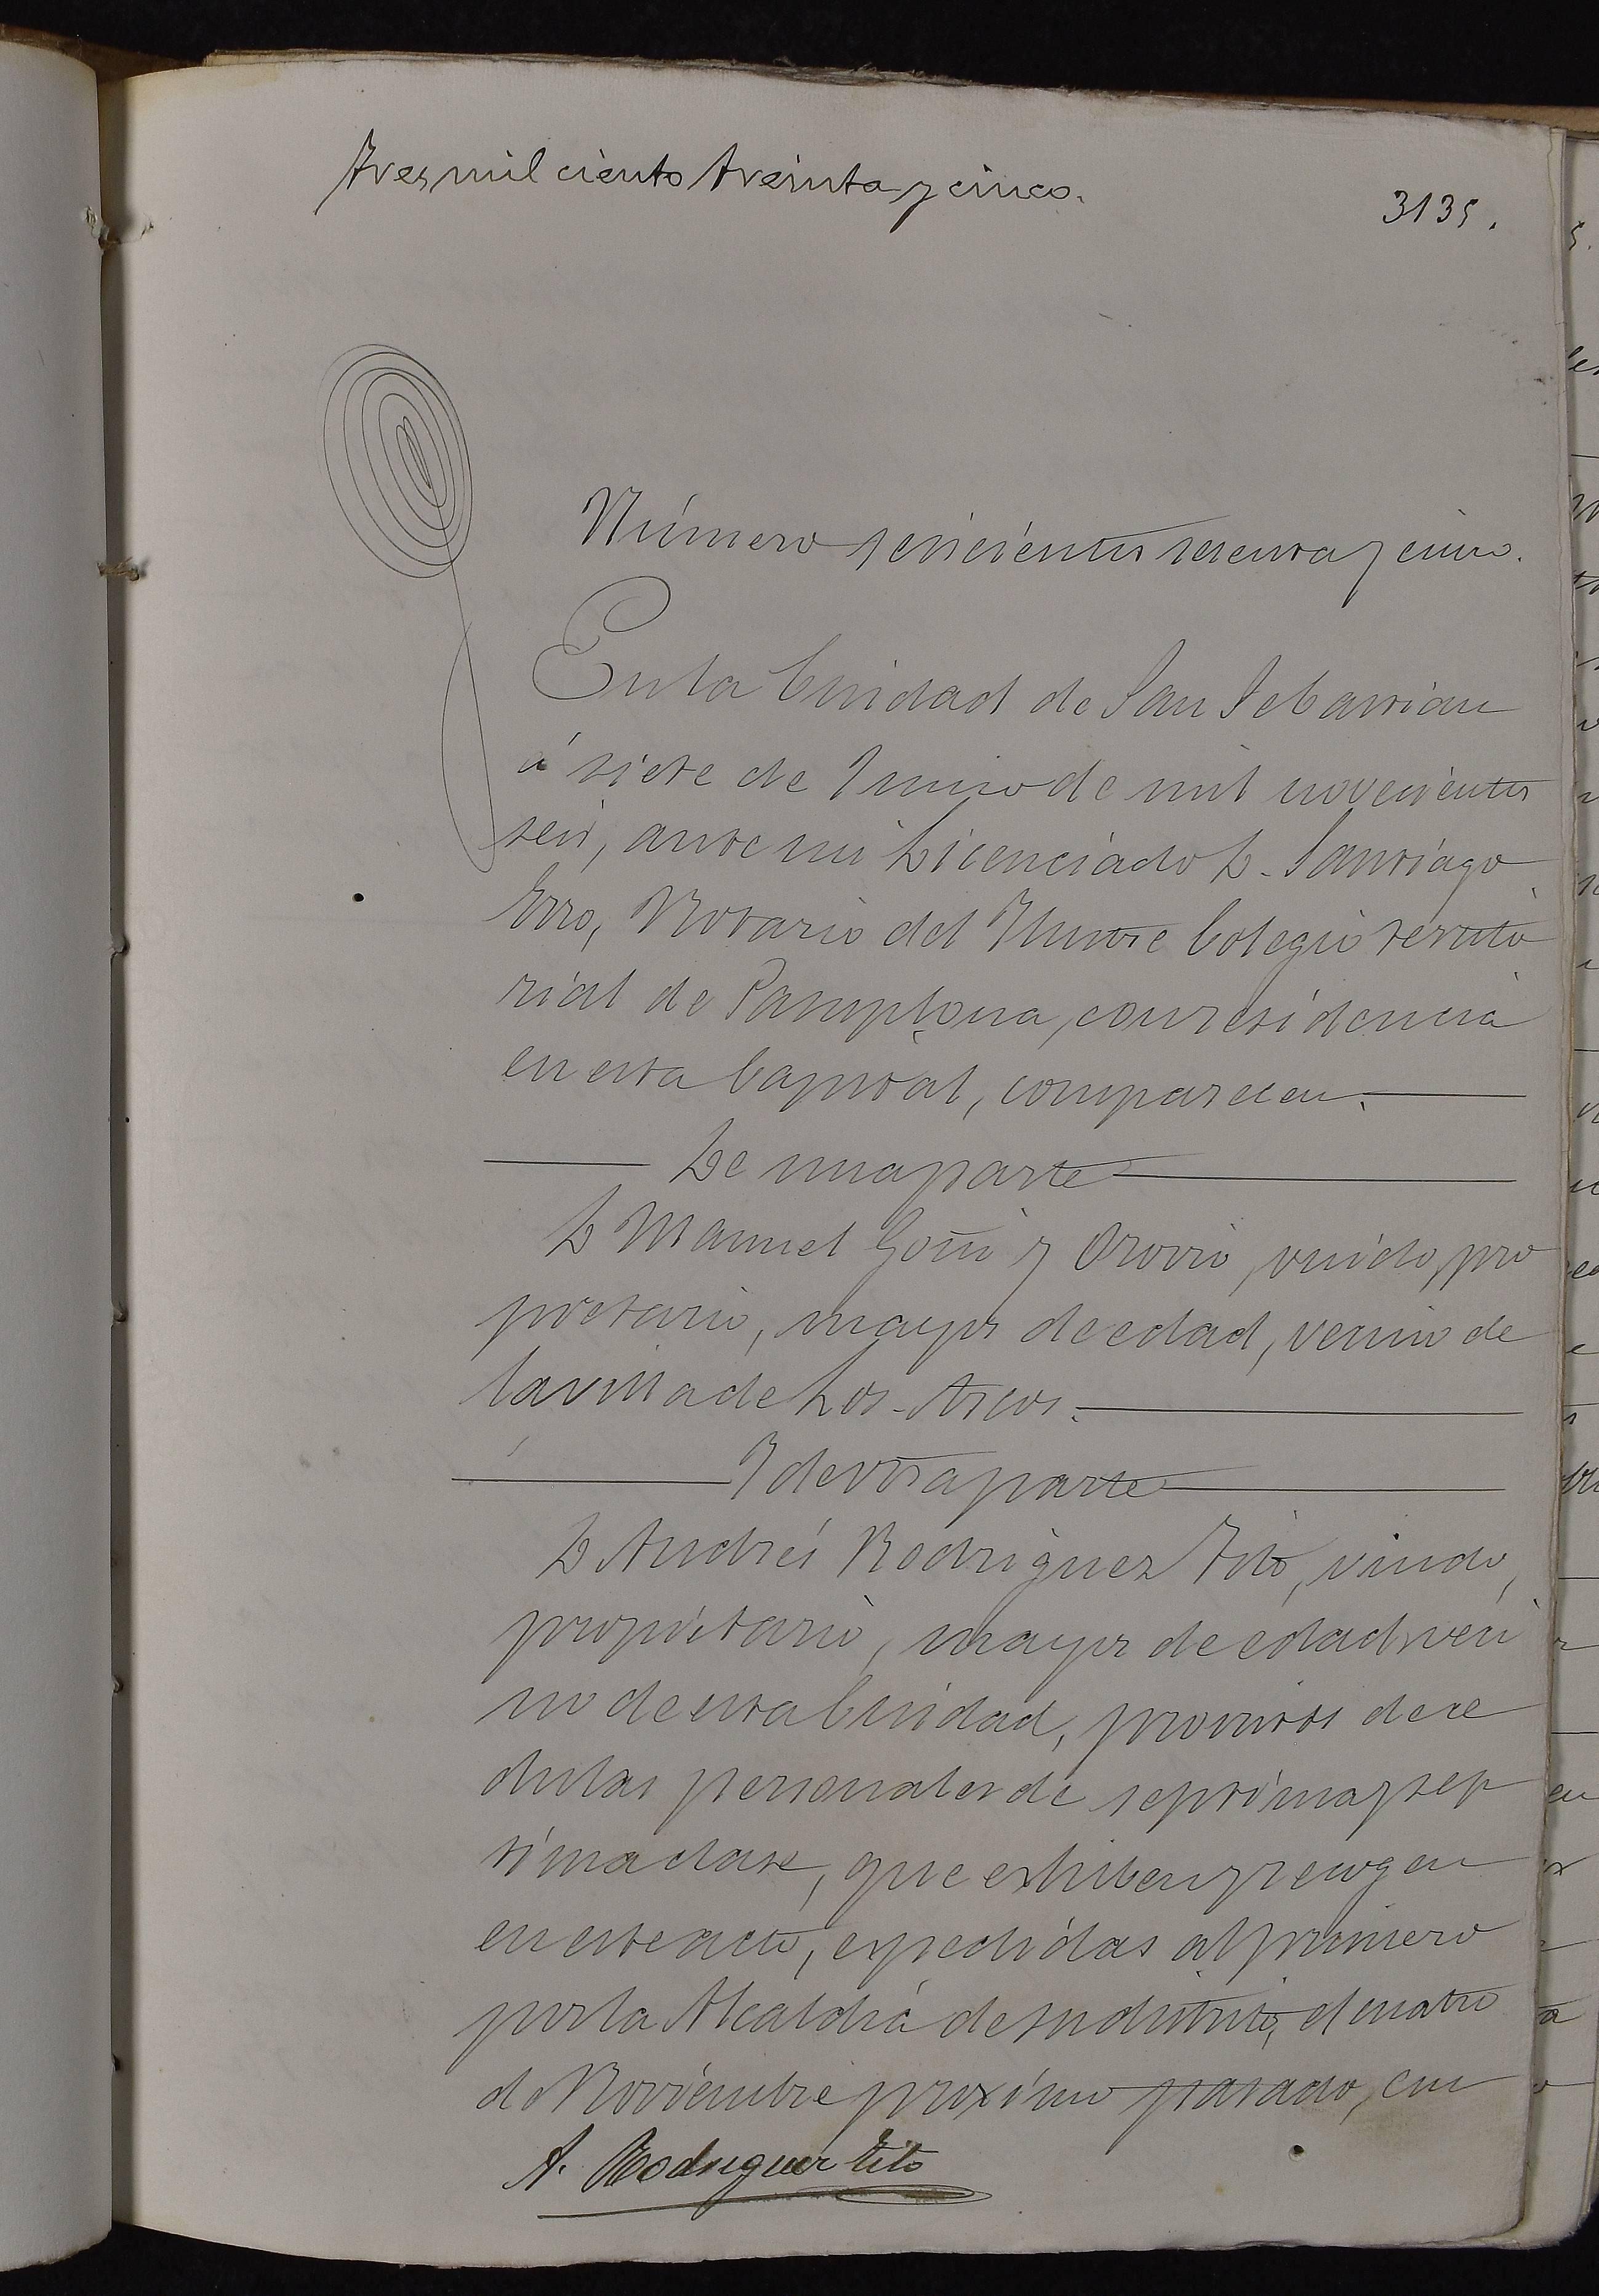 Tres mil ciento treinta y cinco.
3135.
Número seiscientos sesenta y cinco.
En la Ciudad de San Sebastian
á siete de Junio de mil novecientos
seis, ante mi Licenciado D. Santiago
Erro, Notario del Ilustre Colegio territo
rial de Pamplona, con residencia
en esta Capital, comparecen.
De una parte
D Manuel Goñi y Orovio, viudo, pro
pietario, mayor de edad, vecino de
la villa de Los-Arcos.
Y de otra parte
D Andrés Rodriguez Tito, viudo,
propietario, mayor de edad, veci
no de esta Ciudad, provistos de ce
dulas personales de septima y sep
tima clase, que exhiben y recogen
en este acto, expedidas al primero
por la Alcaldia de su distrito, el cuatro
de Noviembre proximo pasado, con
A. Rodriguez Tito